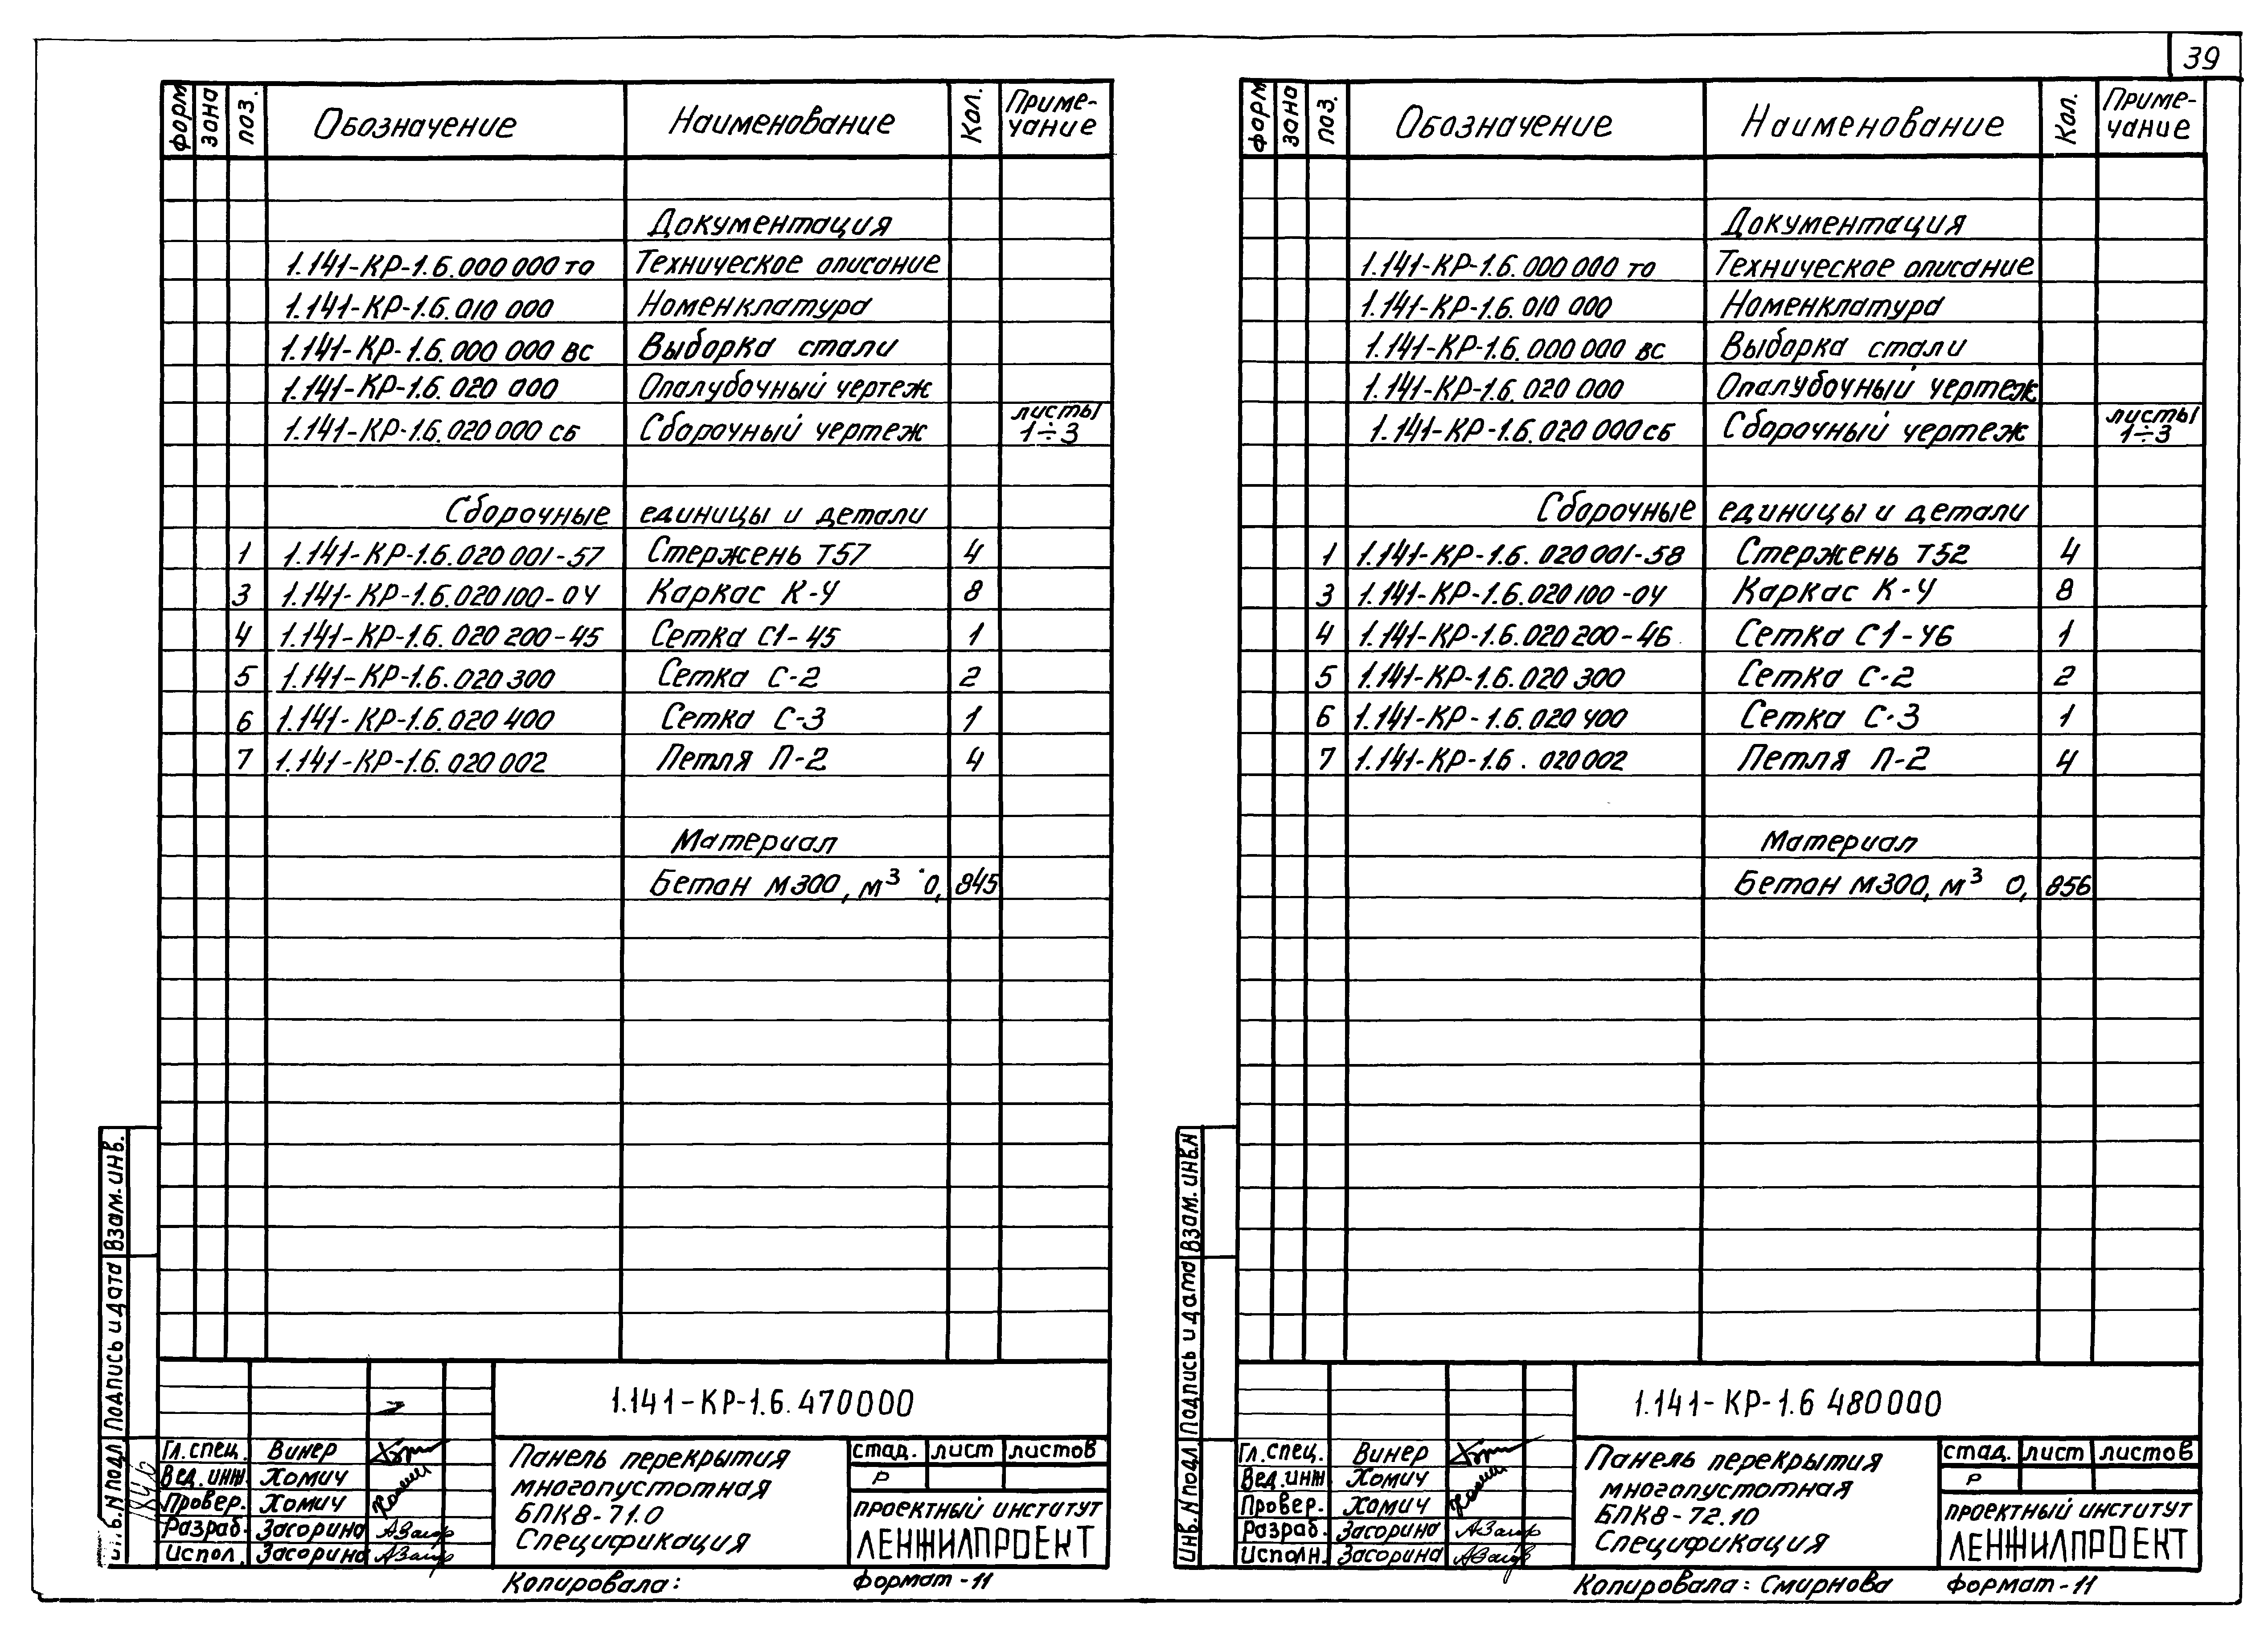 39
форм зона поз. Обозначение Наименование Кол. Приме-чание
Документация
1.141-КР-1.6.000 000 то Техническое описание
1.141-КР-1.6.010 000 Номенклатура
1.141-КР-1.6.000 000 вс Выборка стали
1.141-КР-1.6.020 000 Опалубочный чертеж
1.141-КР-1.6.020 000 сб Сборочный чертеж листы 1÷3
Сборочные единицы и детали
1 1.141-КР-1.6.020 001-57 Стержень Т57 4
3 1.141-КР-1.6.020 100-04 Каркас К-4 8
4 1.141-КР-1.6.020 200-45 Сетка С1-45 1
5 1.141-КР-1.6.020 300 Сетка С-2 2
6 1.141-КР-1.6.020 400 Сетка С-3 1
7 1.141-КР-1.6.020 002 Петля П-2 4
Материал
Бетан М300, м³ 0, 845
Взам. инв.
Подпись и дата
N подл
1.141-КР-1.6.470000
Гл. спец. Винер
Вед. инж Хомич
Провер. Хомич
Разраб. Засорина
Испол. Засорина
Панель перекрытия
многопустотная
БПК8-71.0
Спецификация
стад. лист листов
Р
ПРОЕКТНЫЙ ИНСТИТУТ
ЛЕНЖИЛПРОЕКТ
Копировала: Формат-11
форм зона поз. Обозначение Наименование Кол. Приме-чание
Документация
1.141-КР-1.6.000 000 то Техническое описание
1.141-КР-1.6.010 000 Номенклатура
1.141-КР-1.6.000 000 вс Выборка стали
1.141-КР-1.6.020 000 Опалубочный чертеж
1.141-КР-1.6.020 000 сб Сборочный чертеж листы 1÷3
Сборочные единицы и детали
1 1.141-КР-1.6.020 001-58 Стержень Т52 4
3 1.141-КР-1.6.020 100-04 Каркас К-4 8
4 1.141-КР-1.6.020 200-46 Сетка С1-46 1
5 1.141-КР-1.6.020 300 Сетка С-2 2
6 1.141-КР-1.6.020 400 Сетка С-3 1
7 1.141-КР-1.6.020 002 Петля П-2 4
Материал
Бетан М300, м³ 0, 856
Взам. инв.N
Подпись и дата
Инв. N подл
1.141-КР-1.6 480000
Гл. спец. Винер
Вед. инж Хомич
Провер. Хомич
Разраб. Засорина
Исполн. Засорина
Панель перекрытия
многопустотная
БПК8-72.10
Спецификация
стад. лист листов
Р
ПРОЕКТНЫЙ ИНСТИТУТ
ЛЕНЖИЛПРОЕКТ
Копировала: Смирнова Формат-11